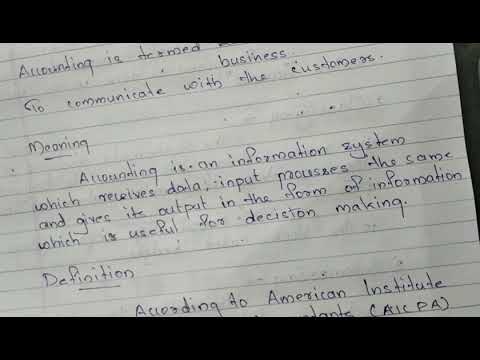 Accounting is termed
business.
To communicate with the customers.
Meaning
Accounting is an information system
which receives data, input prousses the same
and gives its output in the form of information
which is useful for decision making.
Definition
According to American Institute
(AICPA)